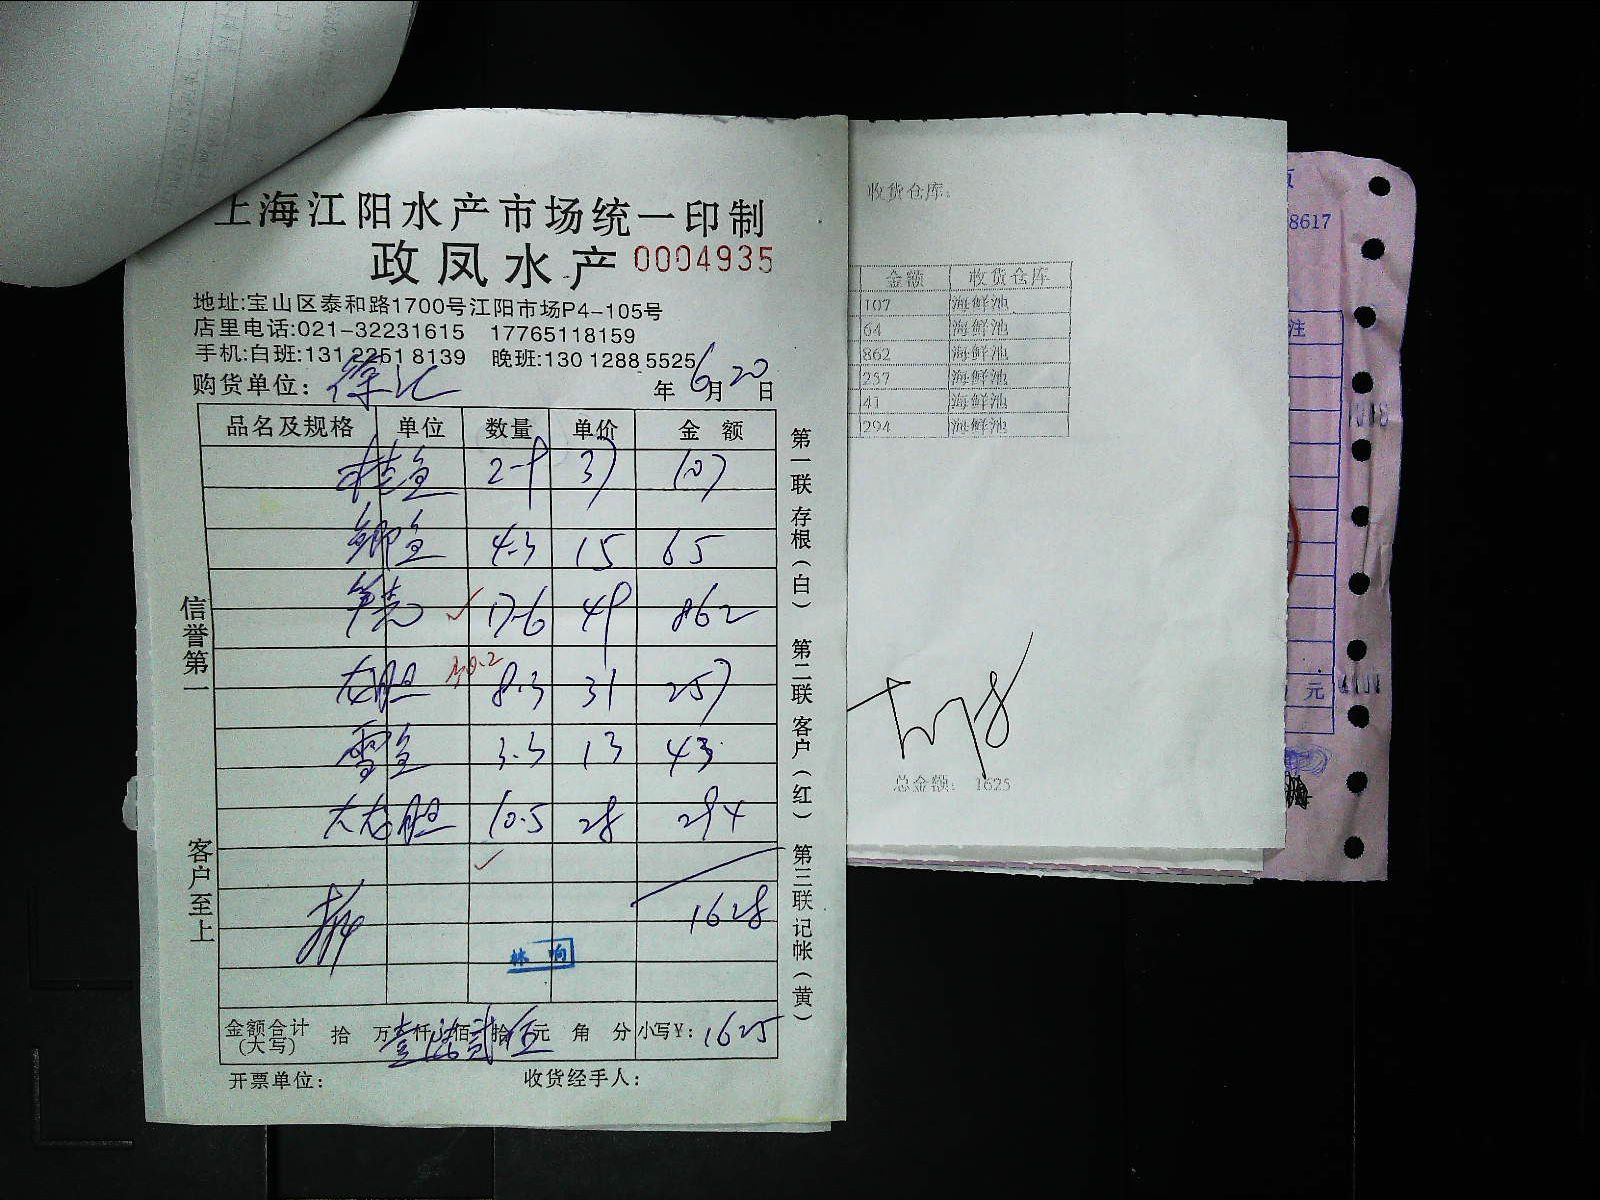 上海江阳水产市场统一印制
政凤水产 0004935
地址:宝山区泰和路1700号江阳市场P4-105号
店里电话:021-32231615 17765118159
手机:白班:131 2251 8139 晚班:130 1288 5525
购货单位: 徐汇 年 6月 20日
品名及规格 单位 数量 单价 金额
桂鱼 2.9 37 107
鲫鱼 4.3 15 65
笋壳 17.6 49 862
龙胆 8.3 31 257
雪鱼 3.3 13 43
大龙胆 10.5 28 294
1628
林 响
金额合计(大写) 拾 万壹仟陆佰贰拾伍元 角 分 小写¥: 1625
开票单位: 收货经手人:
信誉第一
客户至上
第一联存根(白) 第二联客户(红) 第三联记帐(黄)
收货仓库:
金额 收货仓库
107 海鲜池
64 海鲜池
862 海鲜池
257 海鲜池
41 海鲜池
294 海鲜池
总金额: 1625
8617
注
元